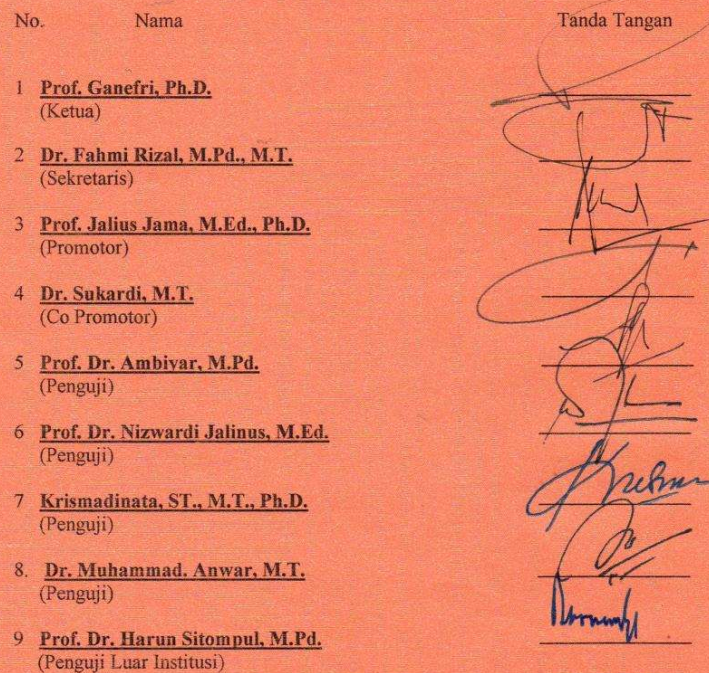 No. Nama Tanda Tangan
1 Prof. Ganefri, Ph.D.
(Ketua)
2 Dr. Fahmi Rizal, M.Pd., M.T.
(Sekretaris)
3 Prof. Jalius Jama, M.Ed., Ph.D.
(Promotor)
4 Dr. Sukardi, M.T.
(Co Promotor)
5 Prof. Dr. Ambiyar, M.Pd.
(Penguji)
6 Prof. Dr. Nizwardi Jalinus, M.Ed.
(Penguji)
7 Krismadinata, ST., M.T., Ph.D.
(Penguji)
8. Dr. Muhammad. Anwar, M.T.
(Penguji)
9 Prof. Dr. Harun Sitompul, M.Pd.
(Penguji Luar Institusi)